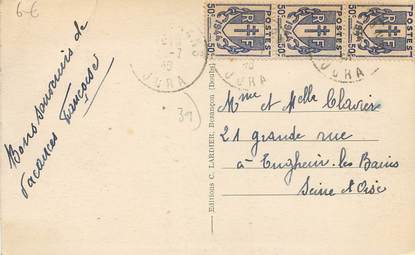 6-€
50c POSTES 50c POSTES 50c POSTES
RF RF RF
JURA JURA
39
Bons souvenirs de
vacances Françoise
Editions C. LARDIER, Besançon (Doubs)
Mme et Melle Clavier
21 grande rue
à Enghein-les Bains
Seine et Oise